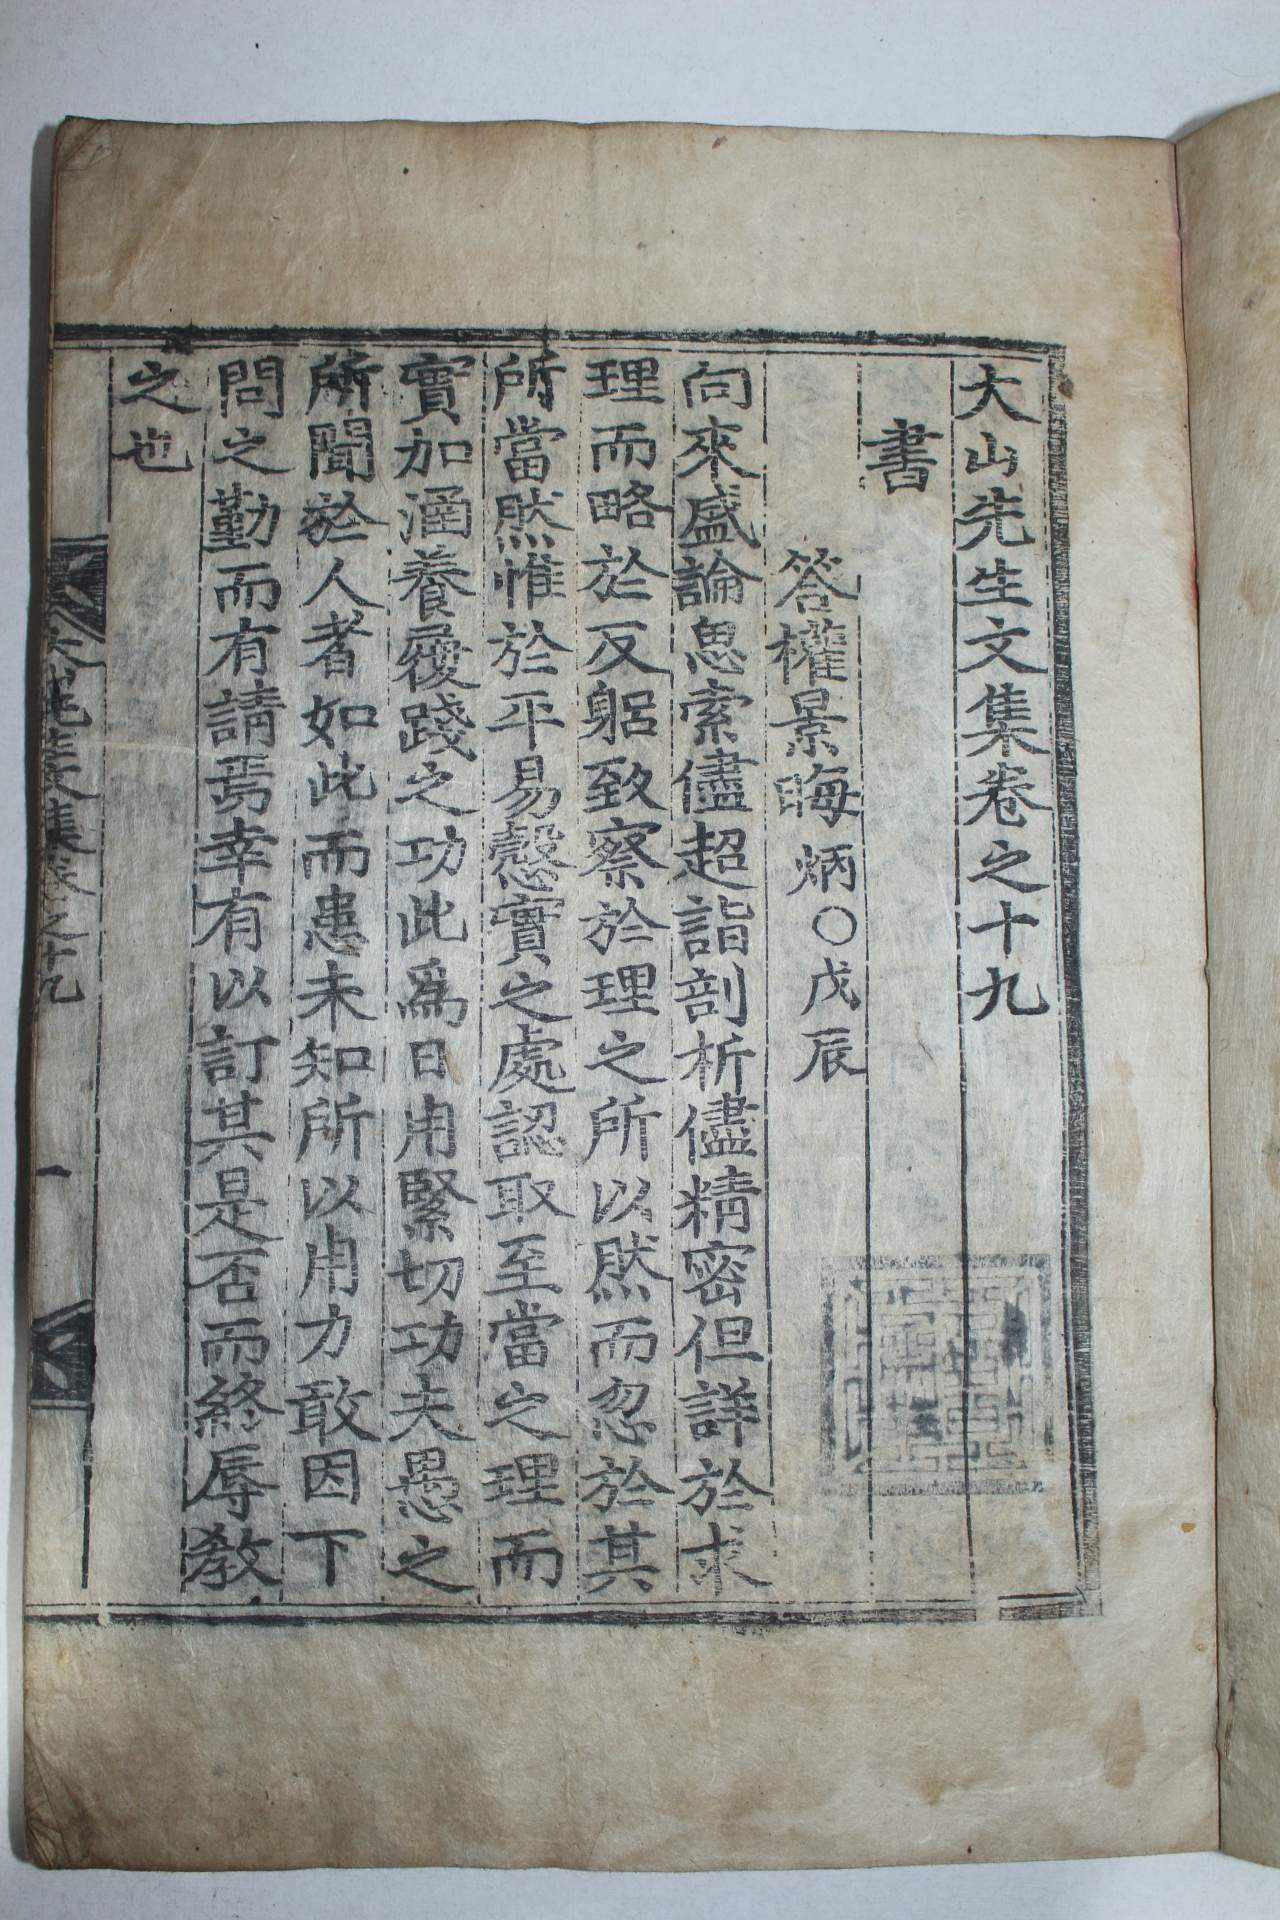 大山先生文集卷之十九
書
答權景晦炳○戊辰
向來盛論思索儘超詣剖析儘精密但詳於求
理而略於反躬致察於理之所以然而忽於其
所當然惟於平易慤實之處認取至當之理而
實加涵養履踐之功此爲日用緊切功夫愚之
所聞於人者如此而患未知所以用力敢因下
問之勤而有請焉幸有以訂其是否而終辱敎
之也
大山先生文集卷之十九
一